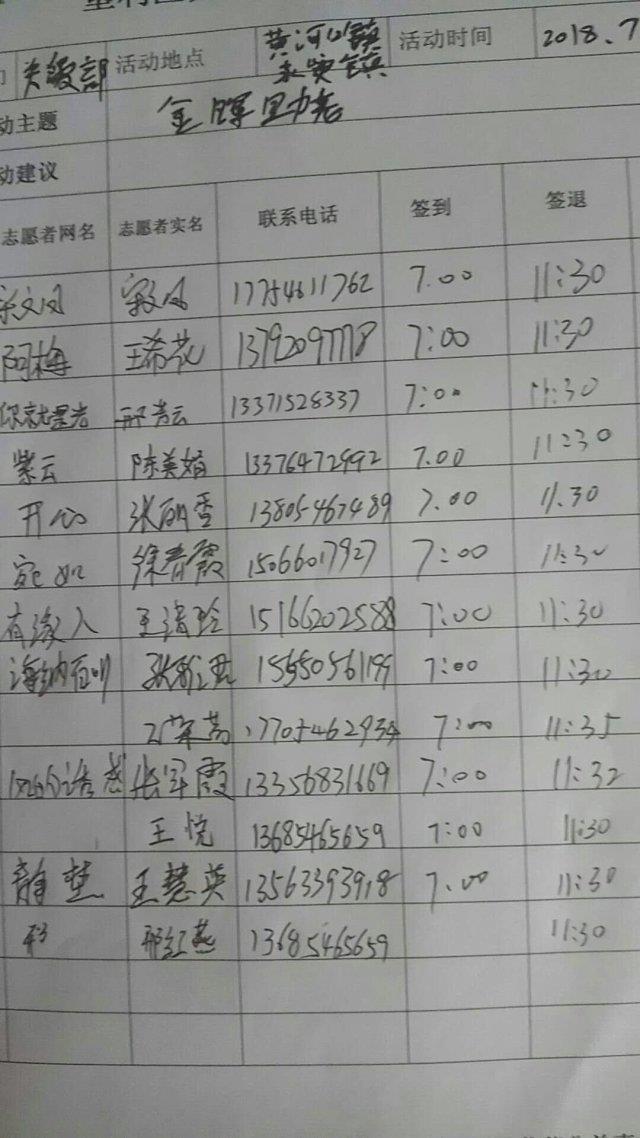 活动地点 黄河口镇 永安镇 活动时间 2018.7
动主题
动建议
志愿者网名 志愿者实名 联系电话 签到 签退
17754611762 7.00 11:30
阿梅 王希花 13792097778 7:00 11:30
邢吉云 13371528337 7:00 11:30
紫云 陈美娟 13376472992 7.00 11:30
开心 张丽雪 13805467489 7.00 11.30
宛如 徐春霞 15066017927 7:00 11:30
有缘人 王清玲 15166202588 7:00 11:30
海纳百川 7:00 11:30
17705462934 7:00 11:35
张军霞 13356831669 7:00 11:32
王悦 13685465659 7:00 11:30
静慧 王慧英 13563393918 7.00 11:30
邢红燕 13685465659 11:30